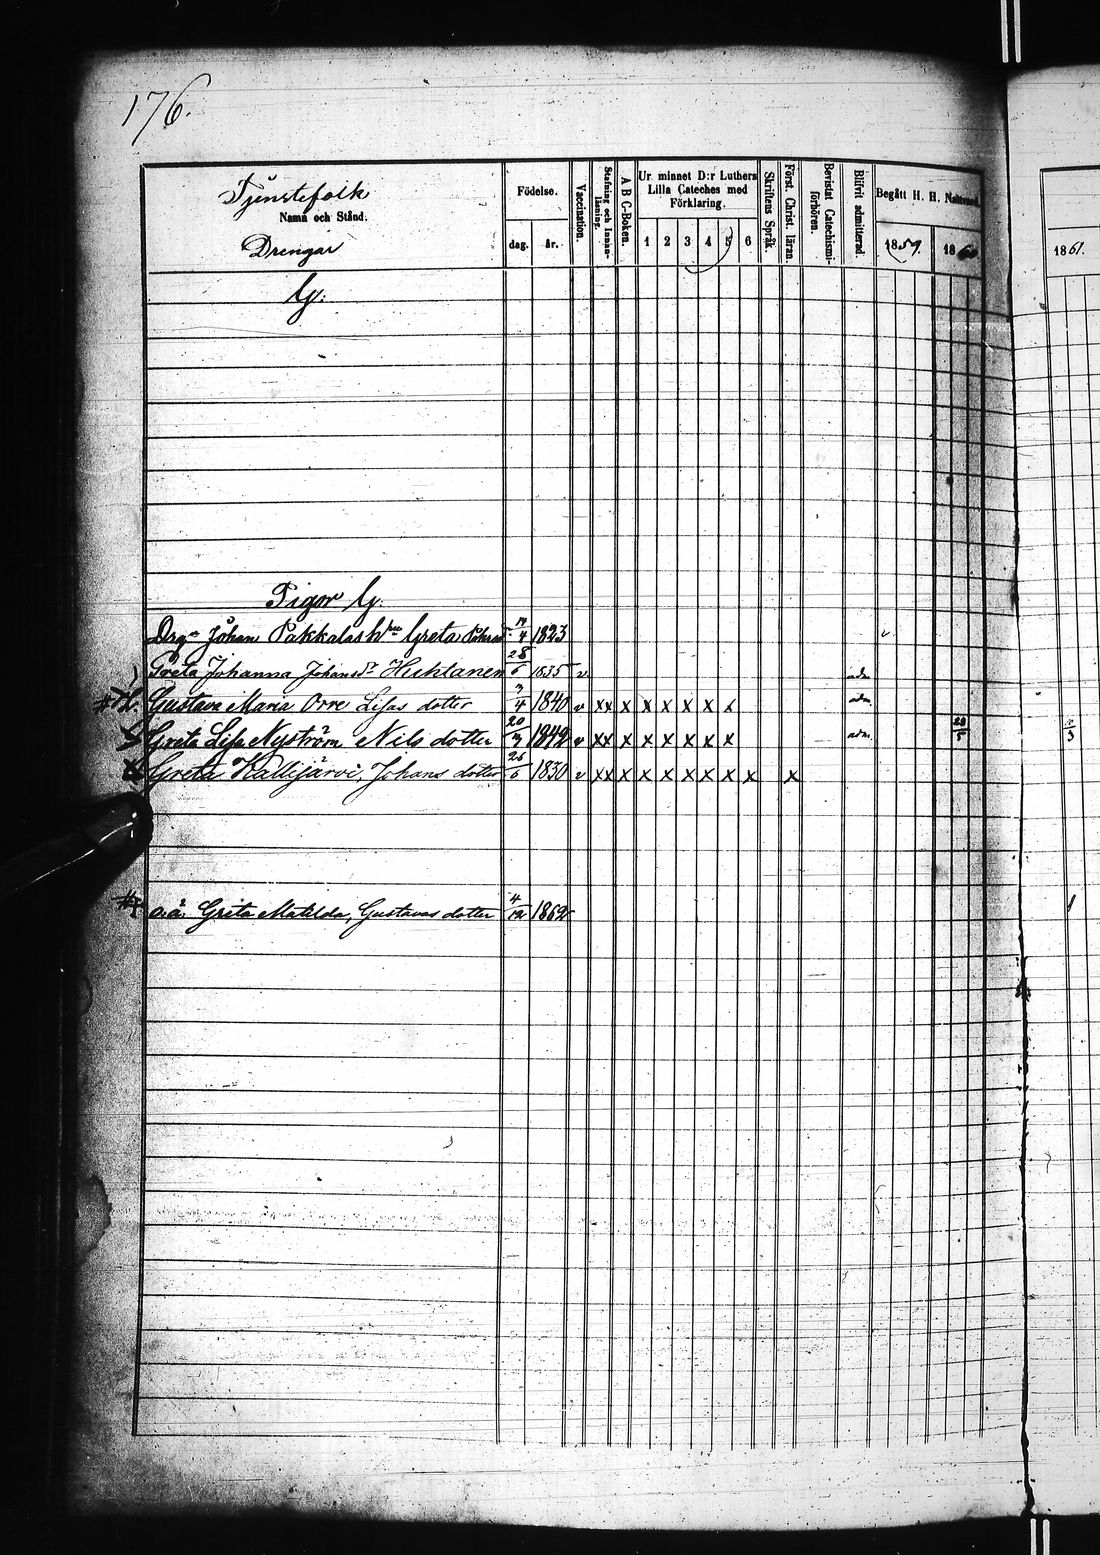 176.
Tjenstefolk
Namn och Stånd.
Drengar
Födelse.
dag. år.
Vaccination.
Stafning och Innan-läsning.
A B C-Boken.
Ur minnet D:r Luthers
Lilla Cateches med
Förklaring.
1 2 3 4 5 6
Skriftens Språk.
Först. Christ. läran.
Bevistat Catechismi-förhören.
Blifvit admitterad.
Begått H. H. Nattvard.
1859. 1860
1861.
G.
Pigor G.
Johan Greta 4 1823 v
Greta Johanna Johansdr 28/6 1835 v adm.
Gustava Maria Orre Lisas dotter 4 1840 v xx x x x x x x adm.
Greta Lisa Nyström Nils dotter 20 1842 v xx x x x x x x adm.
Greta Kallijärvi, Johans dotter 26/6 1830 v xx x x x x x x x x
o.ä. Greta Matilda, Gustavas dotter 4/12 1862